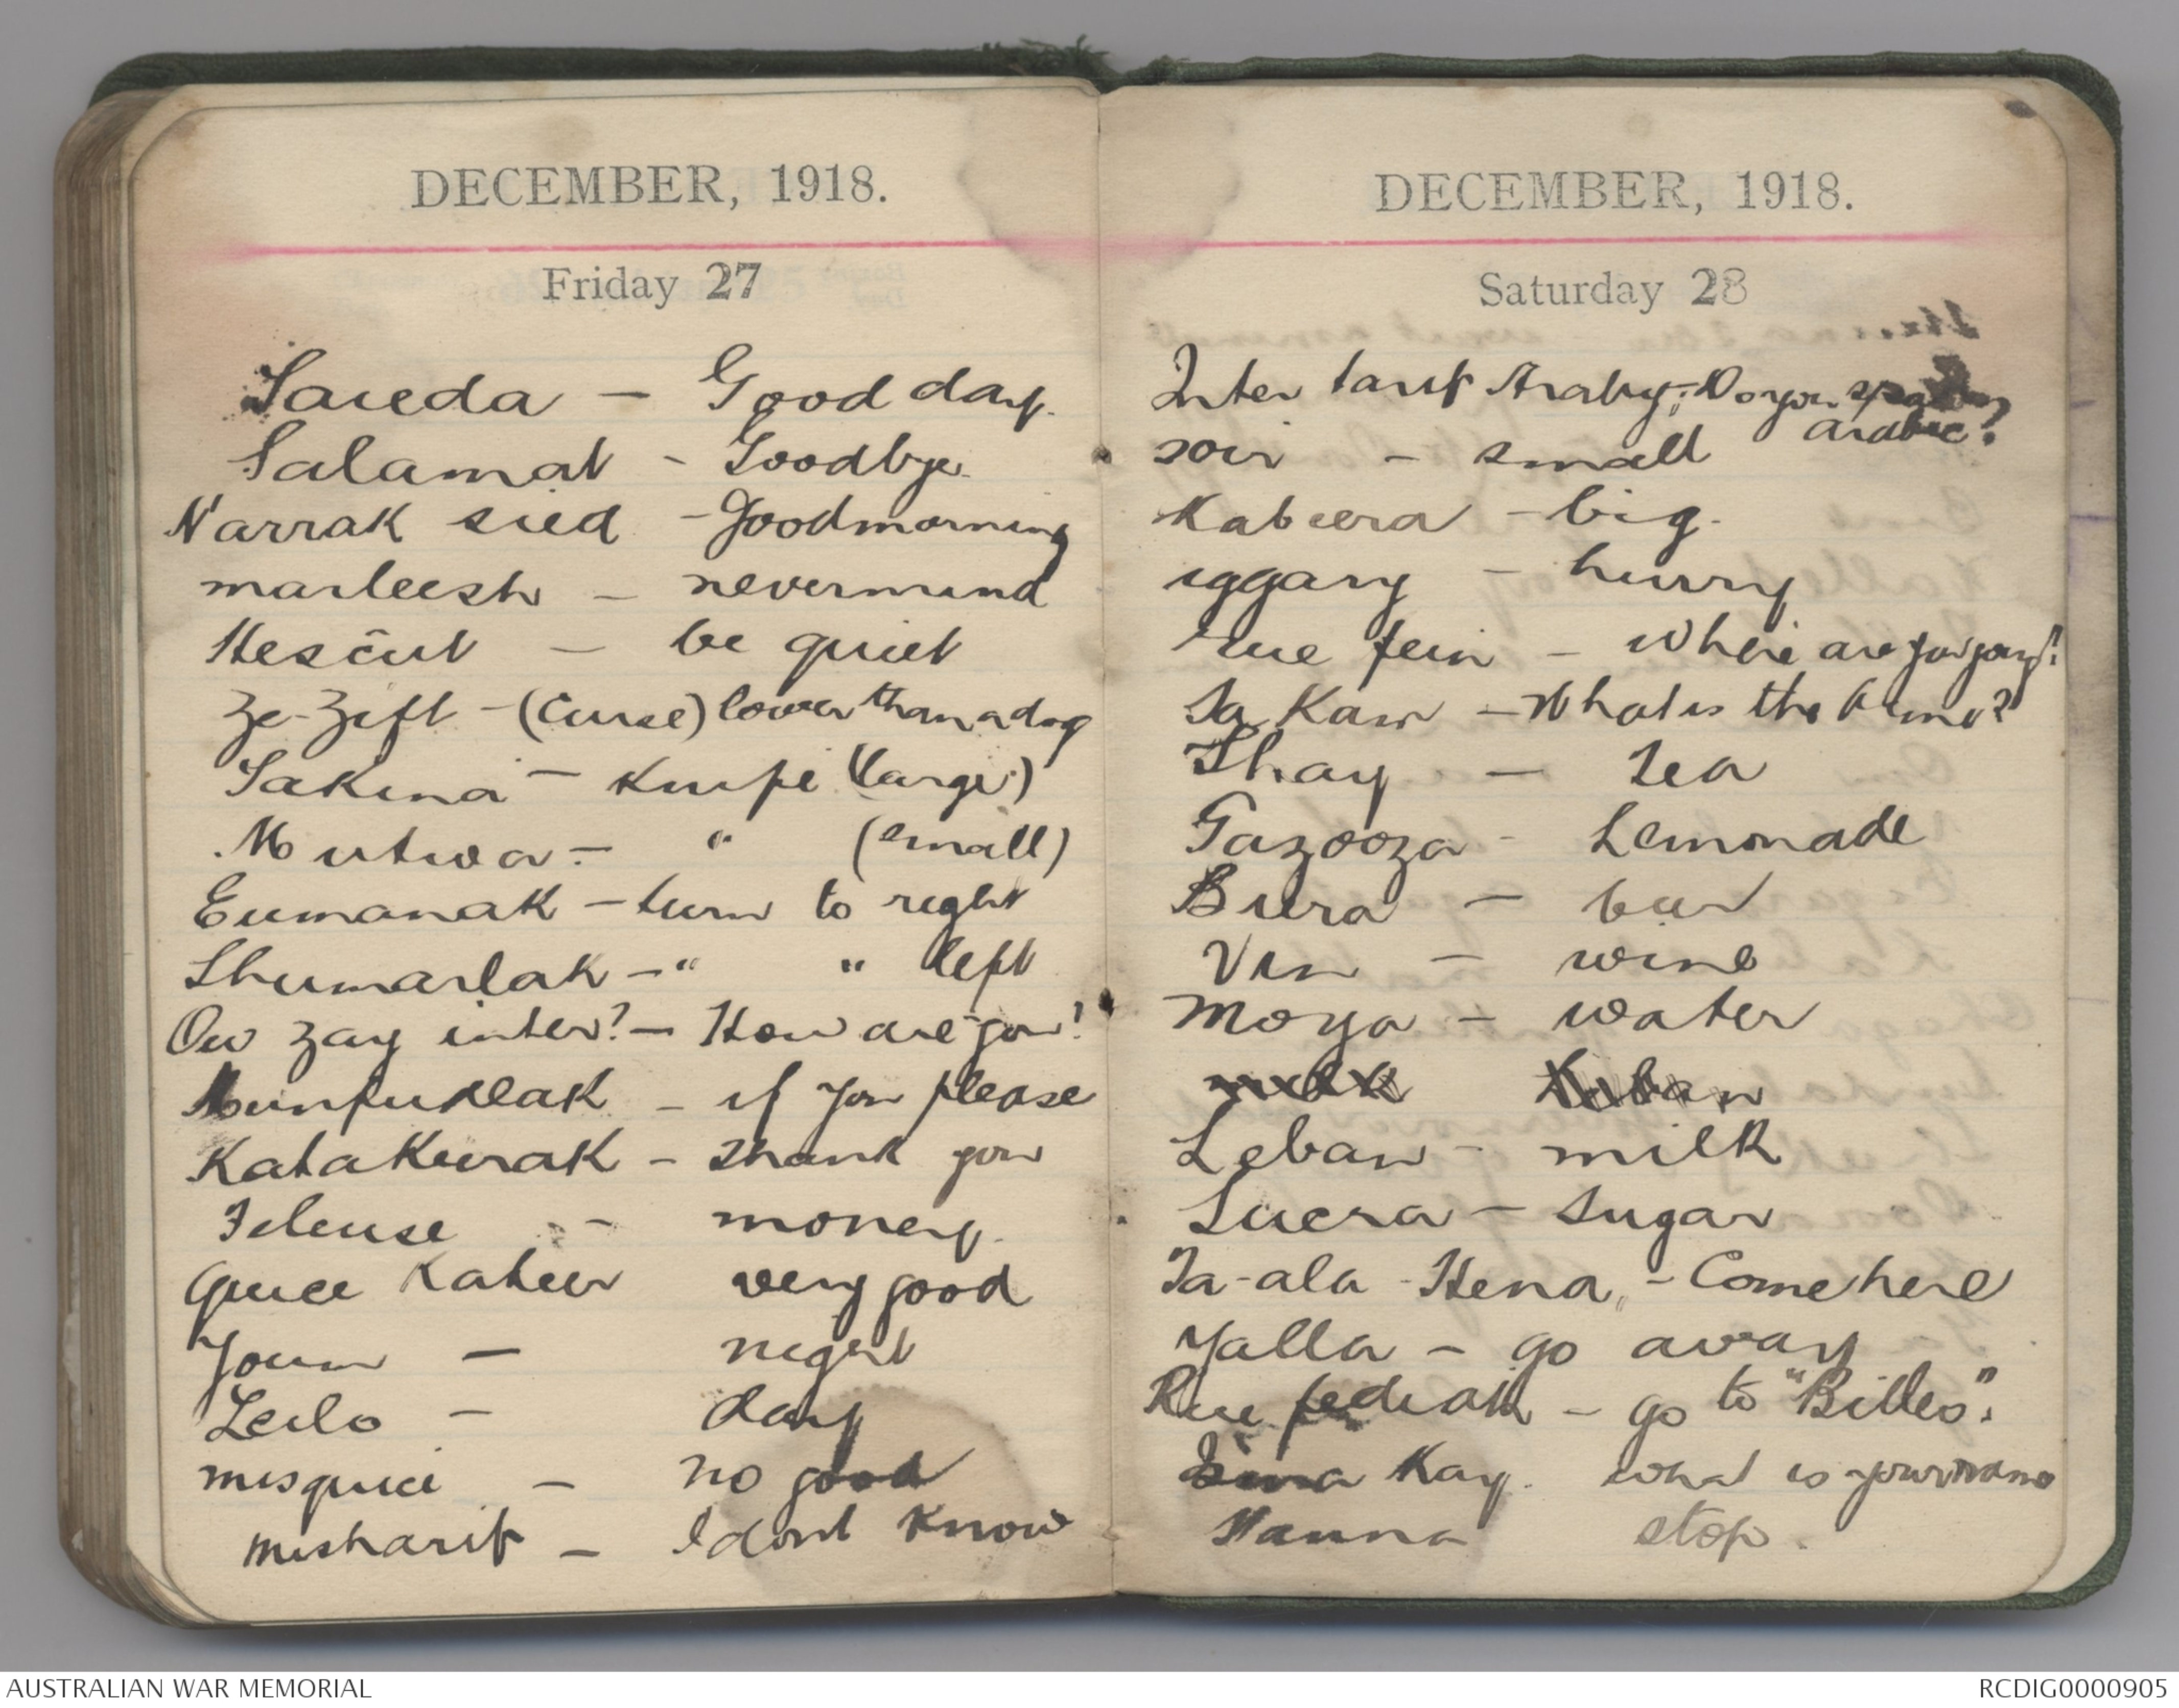 DECEMBER, 1918.
Friday 27
Saieda - Good day.
Salamat - Goodbye.
Narrak sied - Goodmorning
marleesh - nevermind
Hescut - be quiet
Ze-Zift - (curse) lower than a dog
Sakina - knife (large)
Mutwa - " (small)
Eumanak - turn to right
Shumarlak - " " left
Ow zay inter? - How are you?
- if you please
Katakeirak - Thank you
Feleuse - money.
Quice Kateer very good
Youm - night
Leilo - day
misquice - no good
misharif - I dont know
DECEMBER, 1918.
Saturday 28
Inter tarif Araby; Do you speak
arabic?
soir - small
Kabeera - big.
iggary - hurry
rue fein - Where are you going?
Sa Kam - What is the time?
Shay - Tea
Gazooza - Lemonade
Biera - beer
Vin - wine
Moya - water
milk Leban
Leban - milk
Sucra - sugar
Ta-ala-Hena, - Come here
Yalla - go away
Rue - go to "Billeo".
Isma Kay. what is your name
Hanna stop.
AUSTRALIAN WAR MEMORIAL
RCDIG0000905